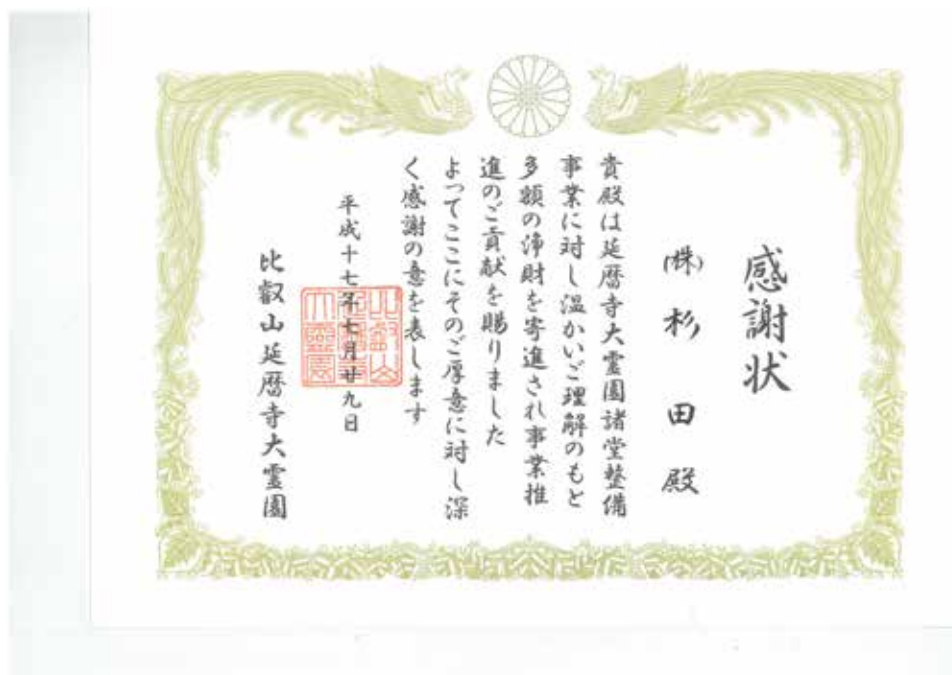 感謝状
㈱杉田殿
貴殿は延暦寺大霊園諸堂整備
事業に対し温かいご理解のもと
多額の浄財を寄進され事業推
進のご貢献を賜りました
よってここにそのご厚意に対し深
く感謝の意を表します
平成十七年七月廿九日
比叡山延暦寺大霊園
比叡山
延暦寺
大靈園